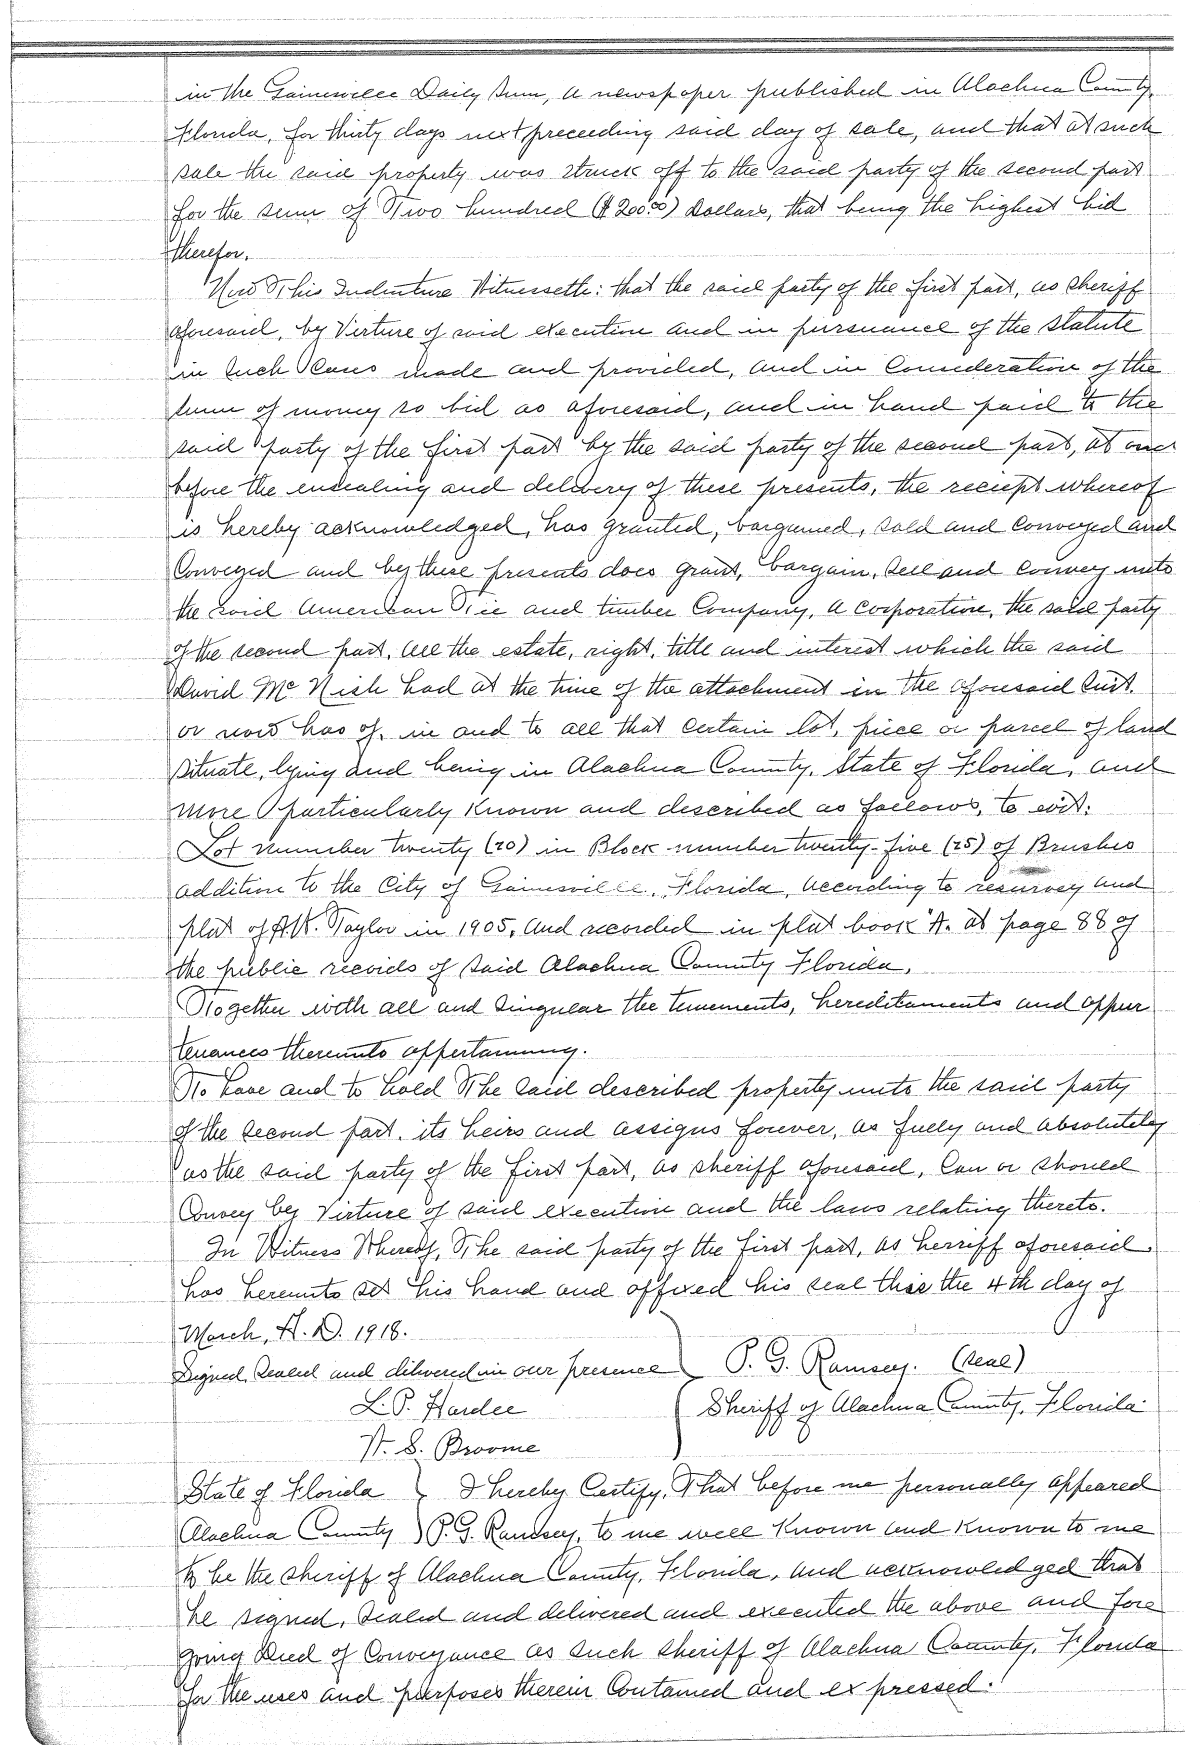 in the Gainesville Daily Sun, a newspaper published in Alachua County,
Florida, for thirty days next preceeding said day of sale, and that at such
sale the said property was struck off to the said party of the second part
for the sum of Two hundred ($200.00) Dollars, that being the highest bid
therefor.
Now This Indenture Witnesseth: that the said party of the first part, as sheriff
aforesaid, by Virture of said execution and in pursuance of the statute
in such Cases made and provided, and in Consideration of the
sum of money so bid as aforesaid, and in hand paid to the
said party of the first part by the said party of the second part, at and
before the ensealing and delivery of these presents, the reciept whereof
is hereby acknowledged, has granted, bargained, sold and conveyed and
Conveyed and by these presents does grant, bargain, sell and convey unto
the said American Tie and timber Company, a corporation, the said party
of the second part, all the estate, right, title and interest which the said
David McNish had at the time of the attachment in the aforesaid Suit.
or now has of, in and to all that certain lot, piece or parcel of land
situate, lying and being in Alachua County, State of Florida, and
more particularly known and described as follows, to wit:
Lot number twenty (20) in Block number twenty-five (25) of Brushes
addition to the City of Gainesville, Florida, according to resurvey and
plat of Taylor in 1905, and recorded in plat book "A. at page 88 of
the public records of said Alachua County Florida,
Together with all and singular the tenements, hereditaments and appur
tenances thereunto appertaining.
To have and to hold The said described property unto the said party
of the second part, its heirs and assigns forever, as fully and absolutely
as the said party of the first part, as sheriff aforesaid, can or should
Convey by Virture of said execution and the laws relating thereto.
In Witness Whereof, The said party of the first part, as herriff aforesaid
has hereunto set his hand and affixed his seal this the 4th day of
March, A. D. 1918.
Signed, Sealed and delivered in our presence } P. G. Ramsey. (seal)
L. P. Hardee { Sheriff of Alachua County, Florida.
W. S. Broome
State of Florida } I hereby Certify, That before me personally appeared
Alachua County ) P. G. Ramsey, to me well known and known to me
to be the sheriff of Alachua County, Florida, and acknowledged that
he signed, sealed and delivered and executed the above and fore
going Deed of Conveyance as such sheriff of Alachua County, Florida
for the uses and purposes therein Contained and expressed.